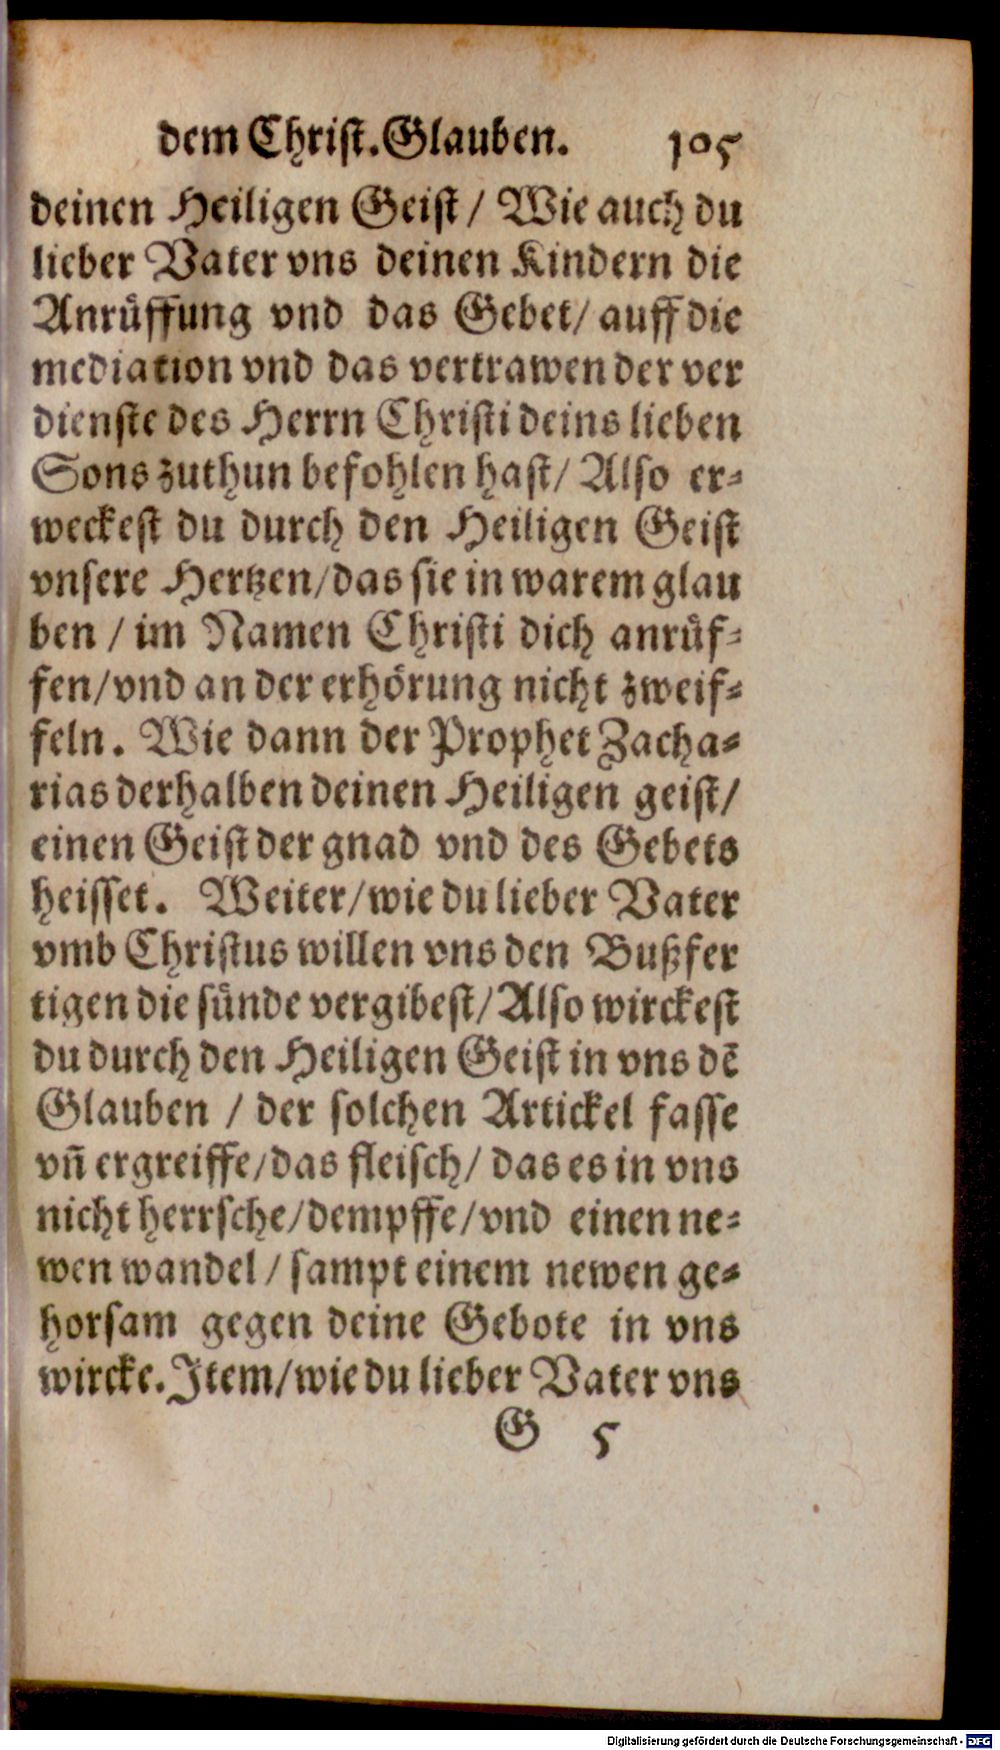 dem Christ. Glauben. 105
deinen Heiligen Geist / Wie auch du
lieber Vater vns deinen Kindern die
Anrůffung vnd das Gebet / auff die
mediation vnd das vertrawen der ver
dienste des Herrn Christi deins lieben
Sons zuthun befohlen hast / Also er-
weckest du durch den Heiligen Geist
vnsere Hertzen / das sie in warem glau
ben / im Namen Christi dich anrůf-
fen / vnd an der erhörung nicht zweif-
feln. Wie dann der Prophet Zacha-
rias derhalben deinen Heiligen geist /
einen Geist der gnad vnd des Gebets
heisset. Weiter / wie du lieber Vater
vmb Christus willen vns den Bußfer
tigen die sünde vergibest / Also wirckest
du durch den Heiligen Geist in vns dē
Glauben / der solchen Artickel fasse
vn̄ ergreiffe / das fleisch / das es in vns
nicht herrsche / dempffe / vnd einen ne-
wen wandel / sampt einem newen ge-
horsam gegen deine Gebote in vns
wircke. Item / wie du lieber Vater vns
G 5
Digitalisierung gefördert durch die Deutsche Forschungsgemeinschaft - DFG